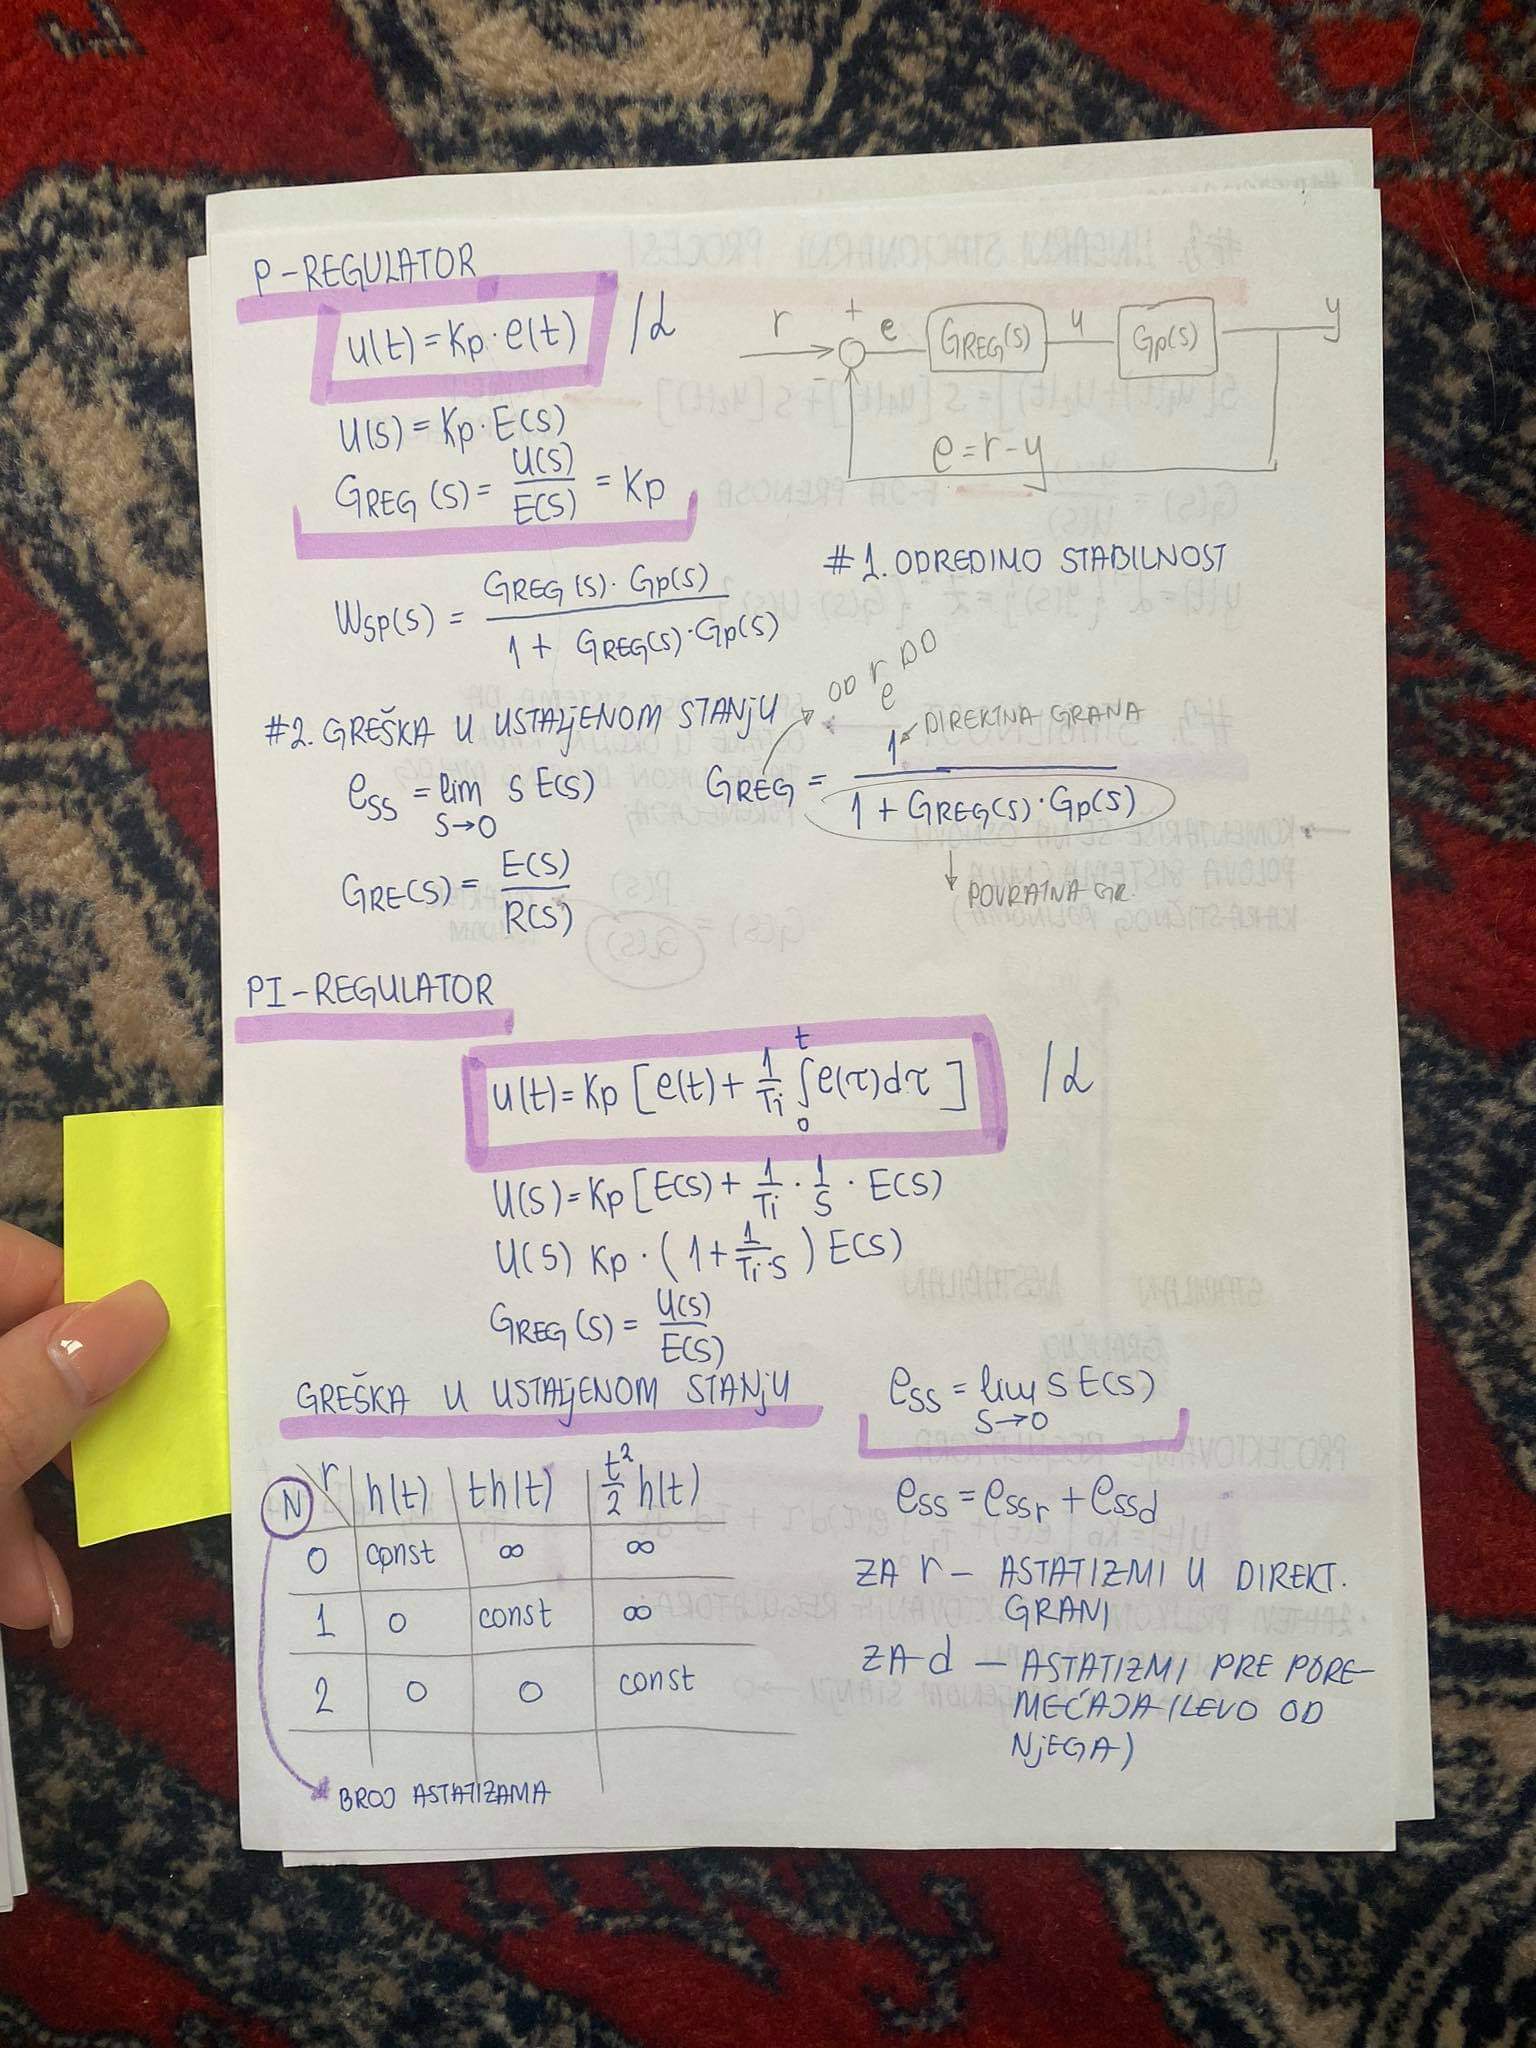 P-REGULATOR
u(t) = Kp · e(t) /L
r + e GREG(s) u Gp(s) y
-
e = r - y
U(s) = Kp · E(s)
GREG (s) = U(s)/E(s) = Kp
#1. ODREDIMO STABILNOST
Wsp(s) = GREG(s) · Gp(s) / 1 + GREG(s) · Gp(s)
OD r DO e
#2. GREŠKA U USTALJENOM STANJU
DIREKTNA GRANA
ess = lim s→0 s E(s)
GREG = 1 / 1 + GREG(s) · Gp(s)
POVRATNA GR.
GRE(s) = E(s)/R(s)
PI-REGULATOR
u(t) = Kp [e(t) + 1/Ti ∫0t e(τ)dτ] /L
U(s) = Kp [E(s) + 1/Ti · 1/s · E(s)
U(s) Kp · (1 + 1/Ti·s) E(s)
GREG (s) = U(s)/E(s)
GREŠKA U USTALJENOM STANJU
ess = lim s→0 s E(s)
N r h(t) th(t) t²/2 h(t)
0 const ∞ ∞
1 0 const ∞
2 0 0 const
BROJ ASTATIZAMA
ess = essr + essd
ZA r - ASTATIZMI U DIREKT.
GRANI
ZA d - ASTATIZMI PRE PORE-
MEĆAJA (LEVO OD
NJEGA)